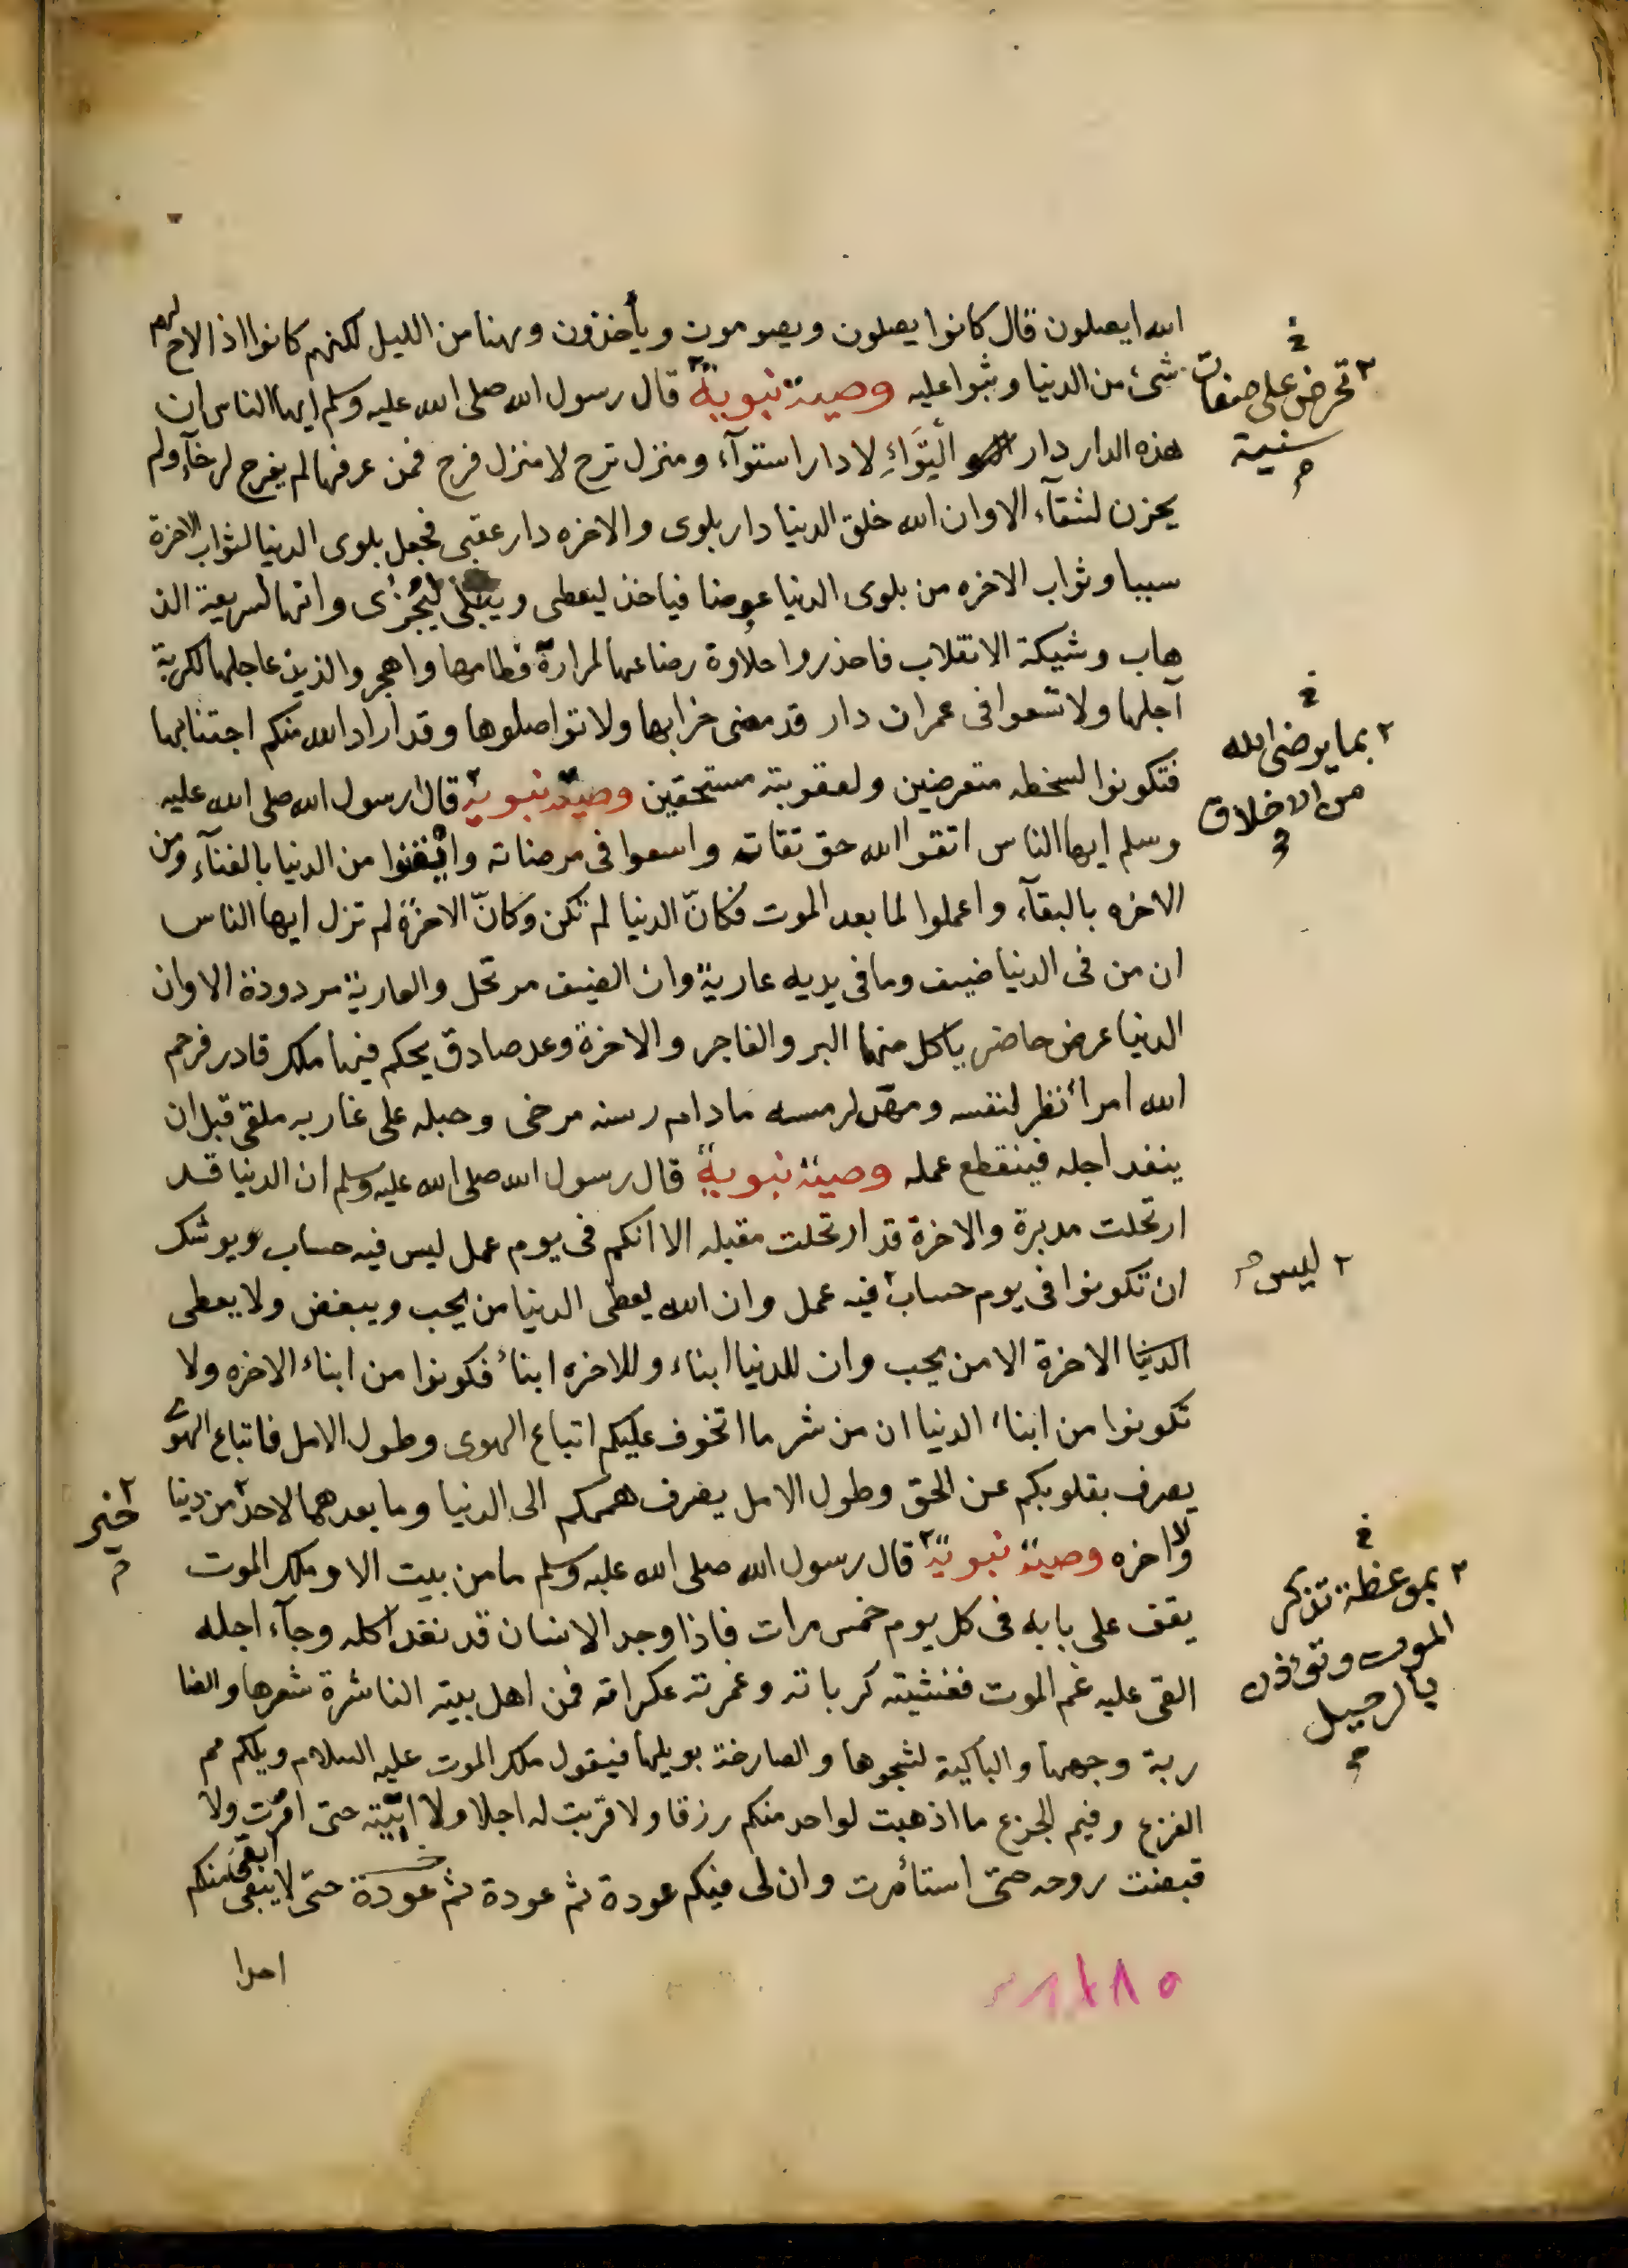 الله ايصلون قال كانوا يصلون ويصومون ويأخذون وهنا من الليل لكنهم كانوا اذا لاح لهم
شئ من الدنيا وثبوا عليه وصية نبوية قال رسول الله صلى الله عليه وسلم ايها الناس ان
هذه الدار دار التِوَاءِ لا دار استوآء ومنزل ترح لا منزل فرح فمن عرفها لم يفرح لرخآء ولم
يحزن لشقآء الا وان الله خلق الدنيا دار بلوى والاخره دار عقبى فجعل بلوى الدنيا لثواب الاخرة
سببا وثواب الاخره من بلوى الدنيا عوضا فياخذ ليعطى ويبتلى ليجزى وانها لسريعة الذ
هاب وشيكة الانقلاب فاحذروا حلاوة رضاعها لمرارة فطامها واهجروا لذيذ عاجلها لكربة
آجلها ولا تسعوا فى عمران دار قد مضى خرابها ولا تواصلوها وقد اراد الله منكم اجتنابها
فتكونوا لسخطه متعرضين ولعقوبته مستحقين وصية نبوية قال رسول الله صلى الله عليه
وسلم ايها الناس اتقوا الله حق تقاته واسعوا فى مرضاته وايقنوا من الدنيا بالفنآء ومن
الاخره بالبقآء واعملوا لما بعد الموت فكانّ الدنيا لم تكن وكانّ الاخرة لم تزل ايها الناس
ان من فى الدنيا ضيف وما فى يديه عارية وان الضيف مرتحل والعارية مردودة الا وان
الدنيا عرض حاضر ياكل منها البر والفاجر والاخرة وعد صادق يحكم فيها ملك قادر فرحم
الله امرأ نظر لنفسه ومهّد لرمسه ما دام رسنه مرخى وحبله على غاربه ملقى قبل ان
ينفد اجله فينقطع عمله وصية نبوية قال رسول الله صلى الله عليه وسلم ان الدنيا قد
ارتحلت مدبرة والاخرة قد ارتحلت مقبله الا انكم فى يوم عمل ليس فيه حساب ويوشك
ان تكونوا فى يوم حساب فيه عمل وان الله يعطى الدنيا من يحب ويبغض ولا يعطى
الاخرة الا من يحب وان للدنيا ابناء وللاخره ابناء فكونوا من ابناء الاخره ولا
تكونوا من ابناء الدنيا ان من شر ما اتخوف عليكم اتباع الهوى وطول الامل فاتباع الهوى
يصرف بقلوبكم عن الحق وطول الامل يصرف هممكم الى الدنيا وما بعدهما لاحد من دنيا
ولا اخره وصية نبوية قال رسول الله صلى الله عليه وسلم ما من بيت الا وملك الموت
يقف على بابه فى كل يوم خمس مرات فاذا وجد الانسان قد نفد اكله وجآء اجله
القى عليه غم الموت فغشيته كرباته وغمرته عكراته فمن اهل بيته الناشرة شعرها والضا
ربة وجهها والباكية لشجوها والصارخة بويلها فيقول ملك الموت عليه السلام ويلكم مم
الفزع وفيم الجزع ما اذهبت لواحد منكم رزقا ولا قربت له اجلا ولا اتيته حتى امرت ولا
قبضت روحه حتى استأمرت وان لى فيكم عودة ثم عودة ثم عودة حتى لا يبقى منكم
ابقى
احدا
تحرض على صفات
سنية
بما يرضى الله
من الاخلاق
ليس
خير
بموعظة تذكر
الموت وتؤذن
بالرحيل